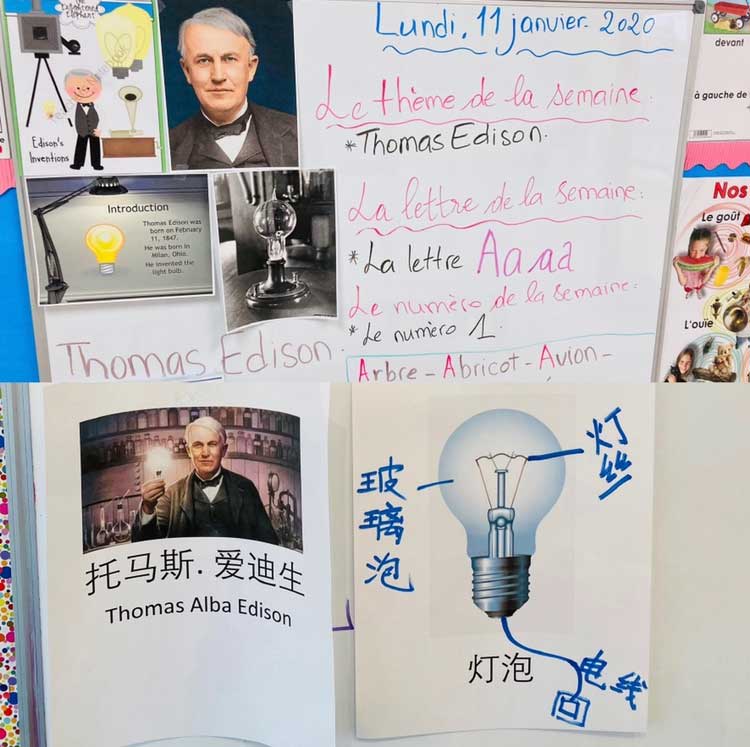 Edison's
Inventions
Introduction
Thomas Edison was
born on February
11, 1847.
He was born in
Milan, Ohio.
He invented the
light bulb.
Thomas Edison.
Lundi, 11 janvier 2020
Le thème de la semaine:
*Thomas Edison.
La lettre de la semaine:
*La lettre Aaad
Le numèro de la semaine:
*Le numèro 1.
Arbre - Abricot - Avion -
devant
à gauche de
Nos
Le goût
L'ouïe
托马斯. 爱迪生
Thomas Alba Edison
玻璃泡
灯丝
灯泡
电线